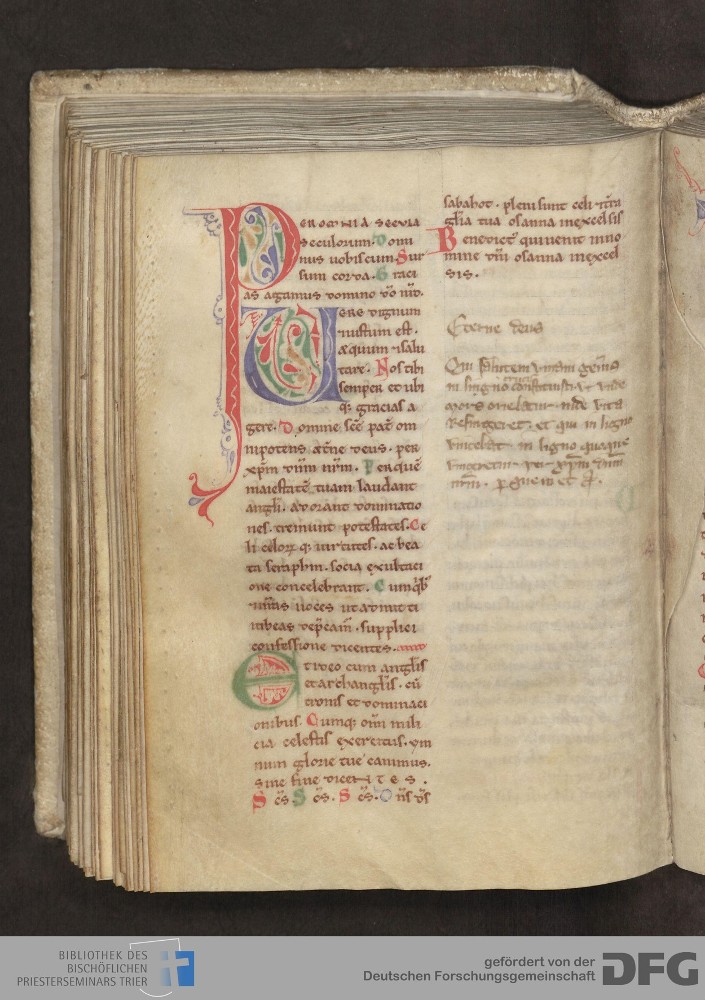 PER OMNIA SECULA
seculorum. Domi
nus uobiscum. Sur
sum corda. Graci
as agamus domino dō nr̄o.
UERE dignum
& iustum est.
æquum & salu
tare. Nos tibi
semper et ubi
q; gracias a
gere. Domine scē pat̄ om
nipotens æt̄ne deus. per
xp̄m dn̄m nr̄m. Per quē
maiestatē tuam laudant
angli. adorant dominatio
nes. tremunt potestates. Ce
li celoꝝ q; uirtutes. ac bea
ta seraphin. socia exultaci
one concelebrant. Cum qib;
& nr̄as uoces ut admitti
iubeas dep̄cam̄. supplici
confessione dicentes.
Et ideo cum anglis
et archanglis. cū
tronis et dominaci
onibus. Cumq; om̄i mili
cia celestis exercitus. ym
num glorie tue canimus.
sine fine dicentes.
Scs̄ Scs̄. Scs̄. Dn̄s ds̄
sabahot. pleni sunt celi & t̄ra
glīa tua osanna in excelsis
Benedict' qui uenit in no
mine dn̄i osanna in excel
sis.
Eterne deus
Qui salutem humani gen̄is
in ligno crucis constituisti. ut unde
mors oriebatur. inde uita
resurgeret. et qui in ligno
uincebat in ligno quoque
uinceretur per xp̄m dn̄m
nr̄m. p quem et c̄.
BIBLIOTHEK DES
BISCHÖFLICHEN
PRIESTERSEMINARS TRIER
gefördert von der
Deutschen Forschungsgemeinschaft
DFG